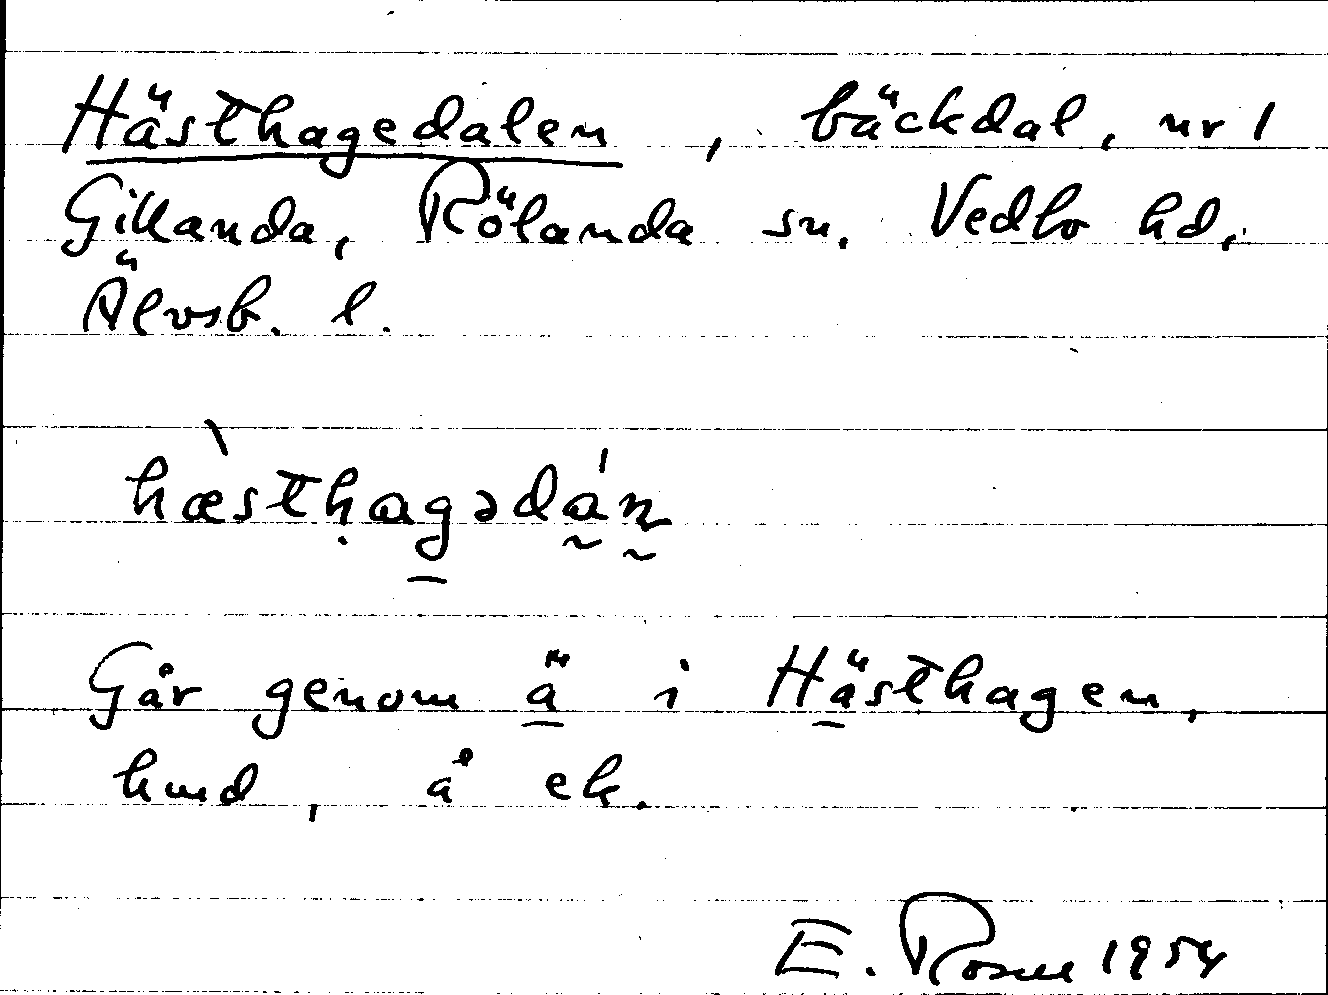 Hästhagedalen, bäckdal, nr 1
Gillanda, Rölanda sn. Vedbo hd,
Älvsb. l.
hæ̀sthagədán
Går genom ä i Hästhagen,
hmd, å ek.
E. Rosén 1954